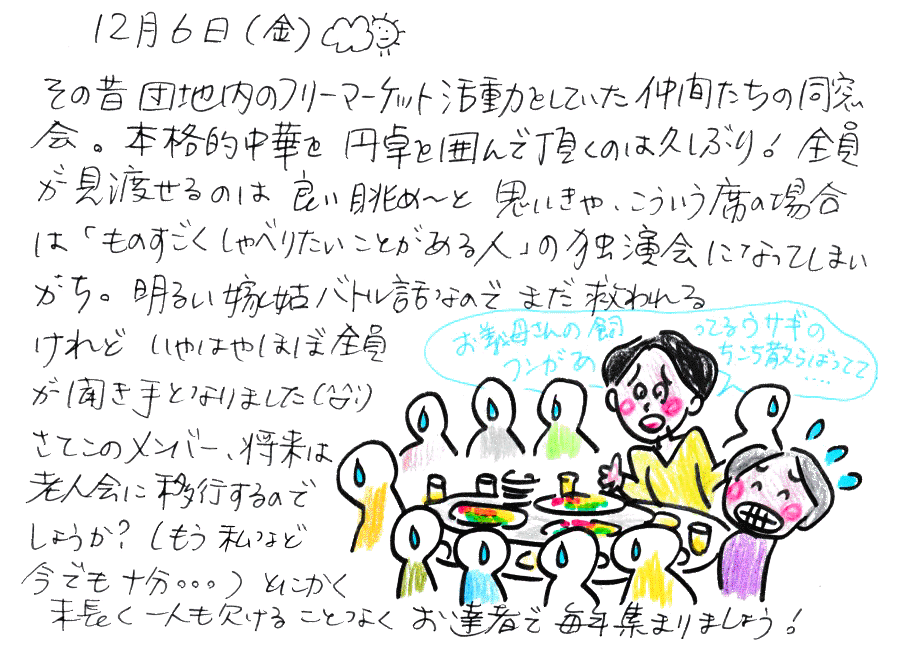 12月6日(金)
その昔 団地内のフリーマーケット活動をしていた 仲間たちの同窓
会。本格的中華を 円卓を囲んで頂くのは久しぶり! 全員
が見渡せるのは 良い眺め〜と 思いきや、こういう席の場合
は「ものすごくしゃべりたいことがある人」の独演会になってしまい
がち。明るい嫁姑バトル話なので まだ救われる
けれど いやはやほぼ全員
が聞き手となりました(^^;)
さてこのメンバー、将来は
老人会に移行するので
しょうか? (もう私など
今でも十分。。。) とにかく
末長く 一人も欠けることなく お達者で 毎年集まりましょう!
お義母さんの飼ってるウサギの
フンがあちこち散らばってて
....